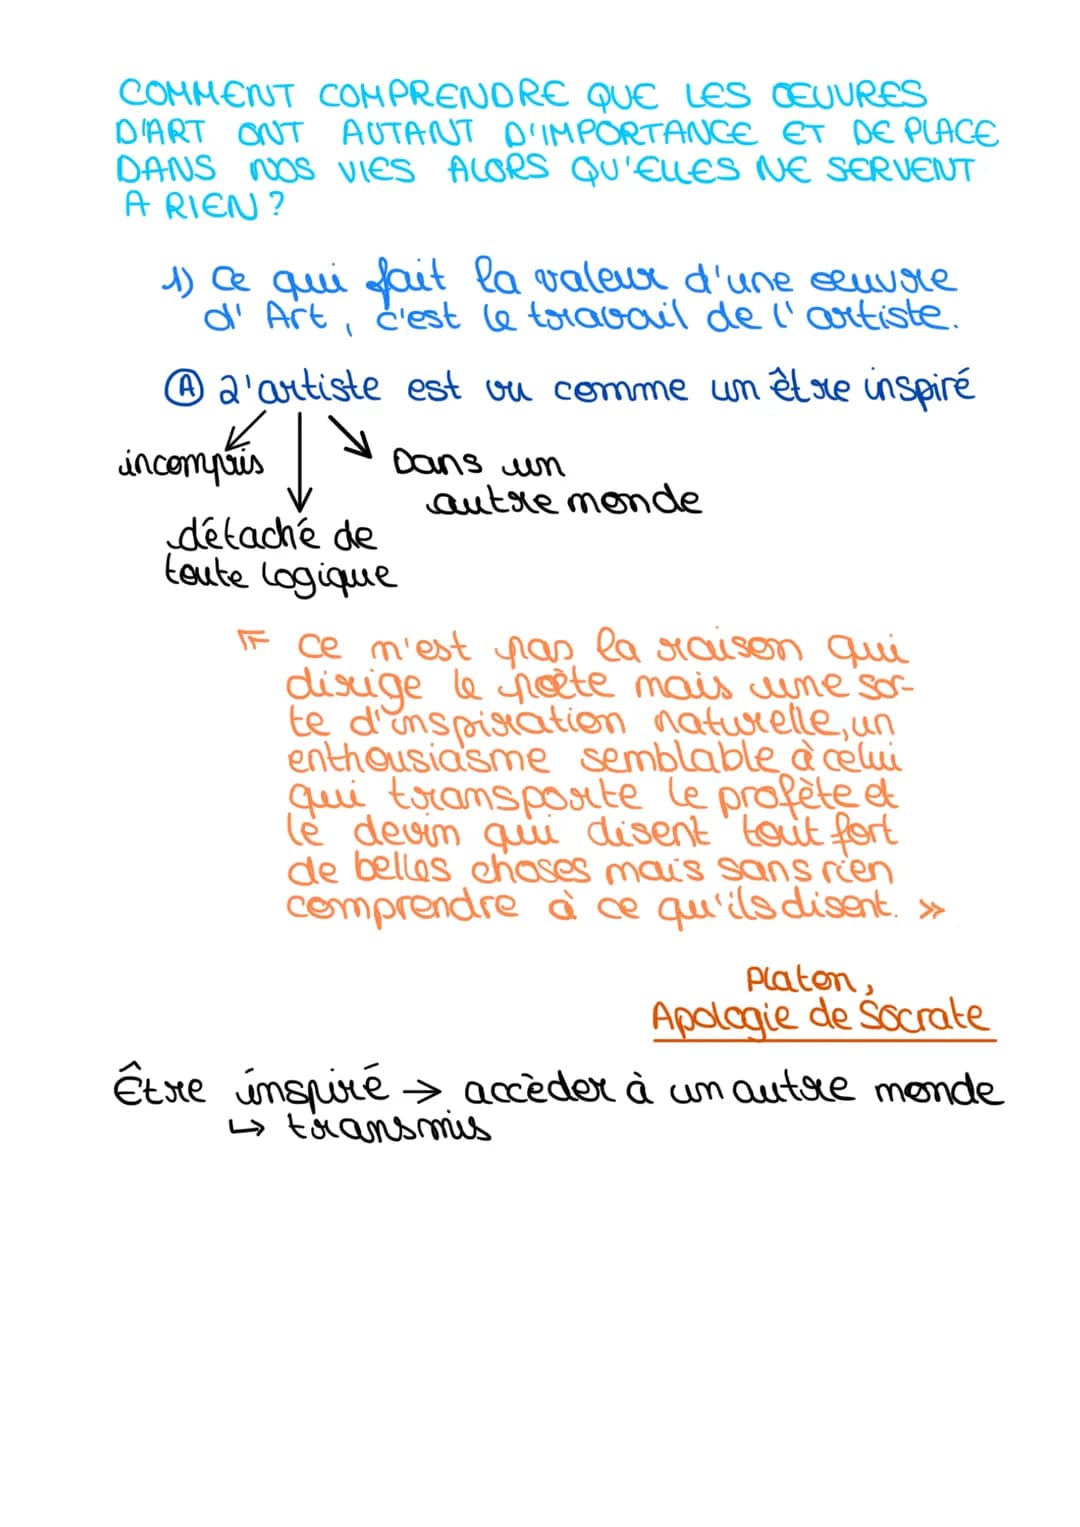 COMMENT COMPRENDRE QUE LES ŒUVRES
D'ART ONT AUTANT D'IMPORTANCE ET DE PLACE
DANS NOS VIES ALORS QU'ELLES NE SERVENT
A RIEN ?
1) Ce qui fait la valeur d'une œuvre
d'Art, c'est le travail de l'artiste.
Ⓐ L'artiste est vu comme un être inspiré
incompris
Dans un
autre monde
détaché de
toute logique
« Ce n'est pas la raison qui
dirige le poète mais une sor-
te d'inspiration naturelle, un
enthousiasme semblable à celui
qui transporte le profète et
le devin qui disent tout fort
de belles choses mais sans rien
comprendre à ce qu'ils disent. »
Platon,
Apologie de Socrate
Être inspiré → accèder à un autre monde
↳ transmis